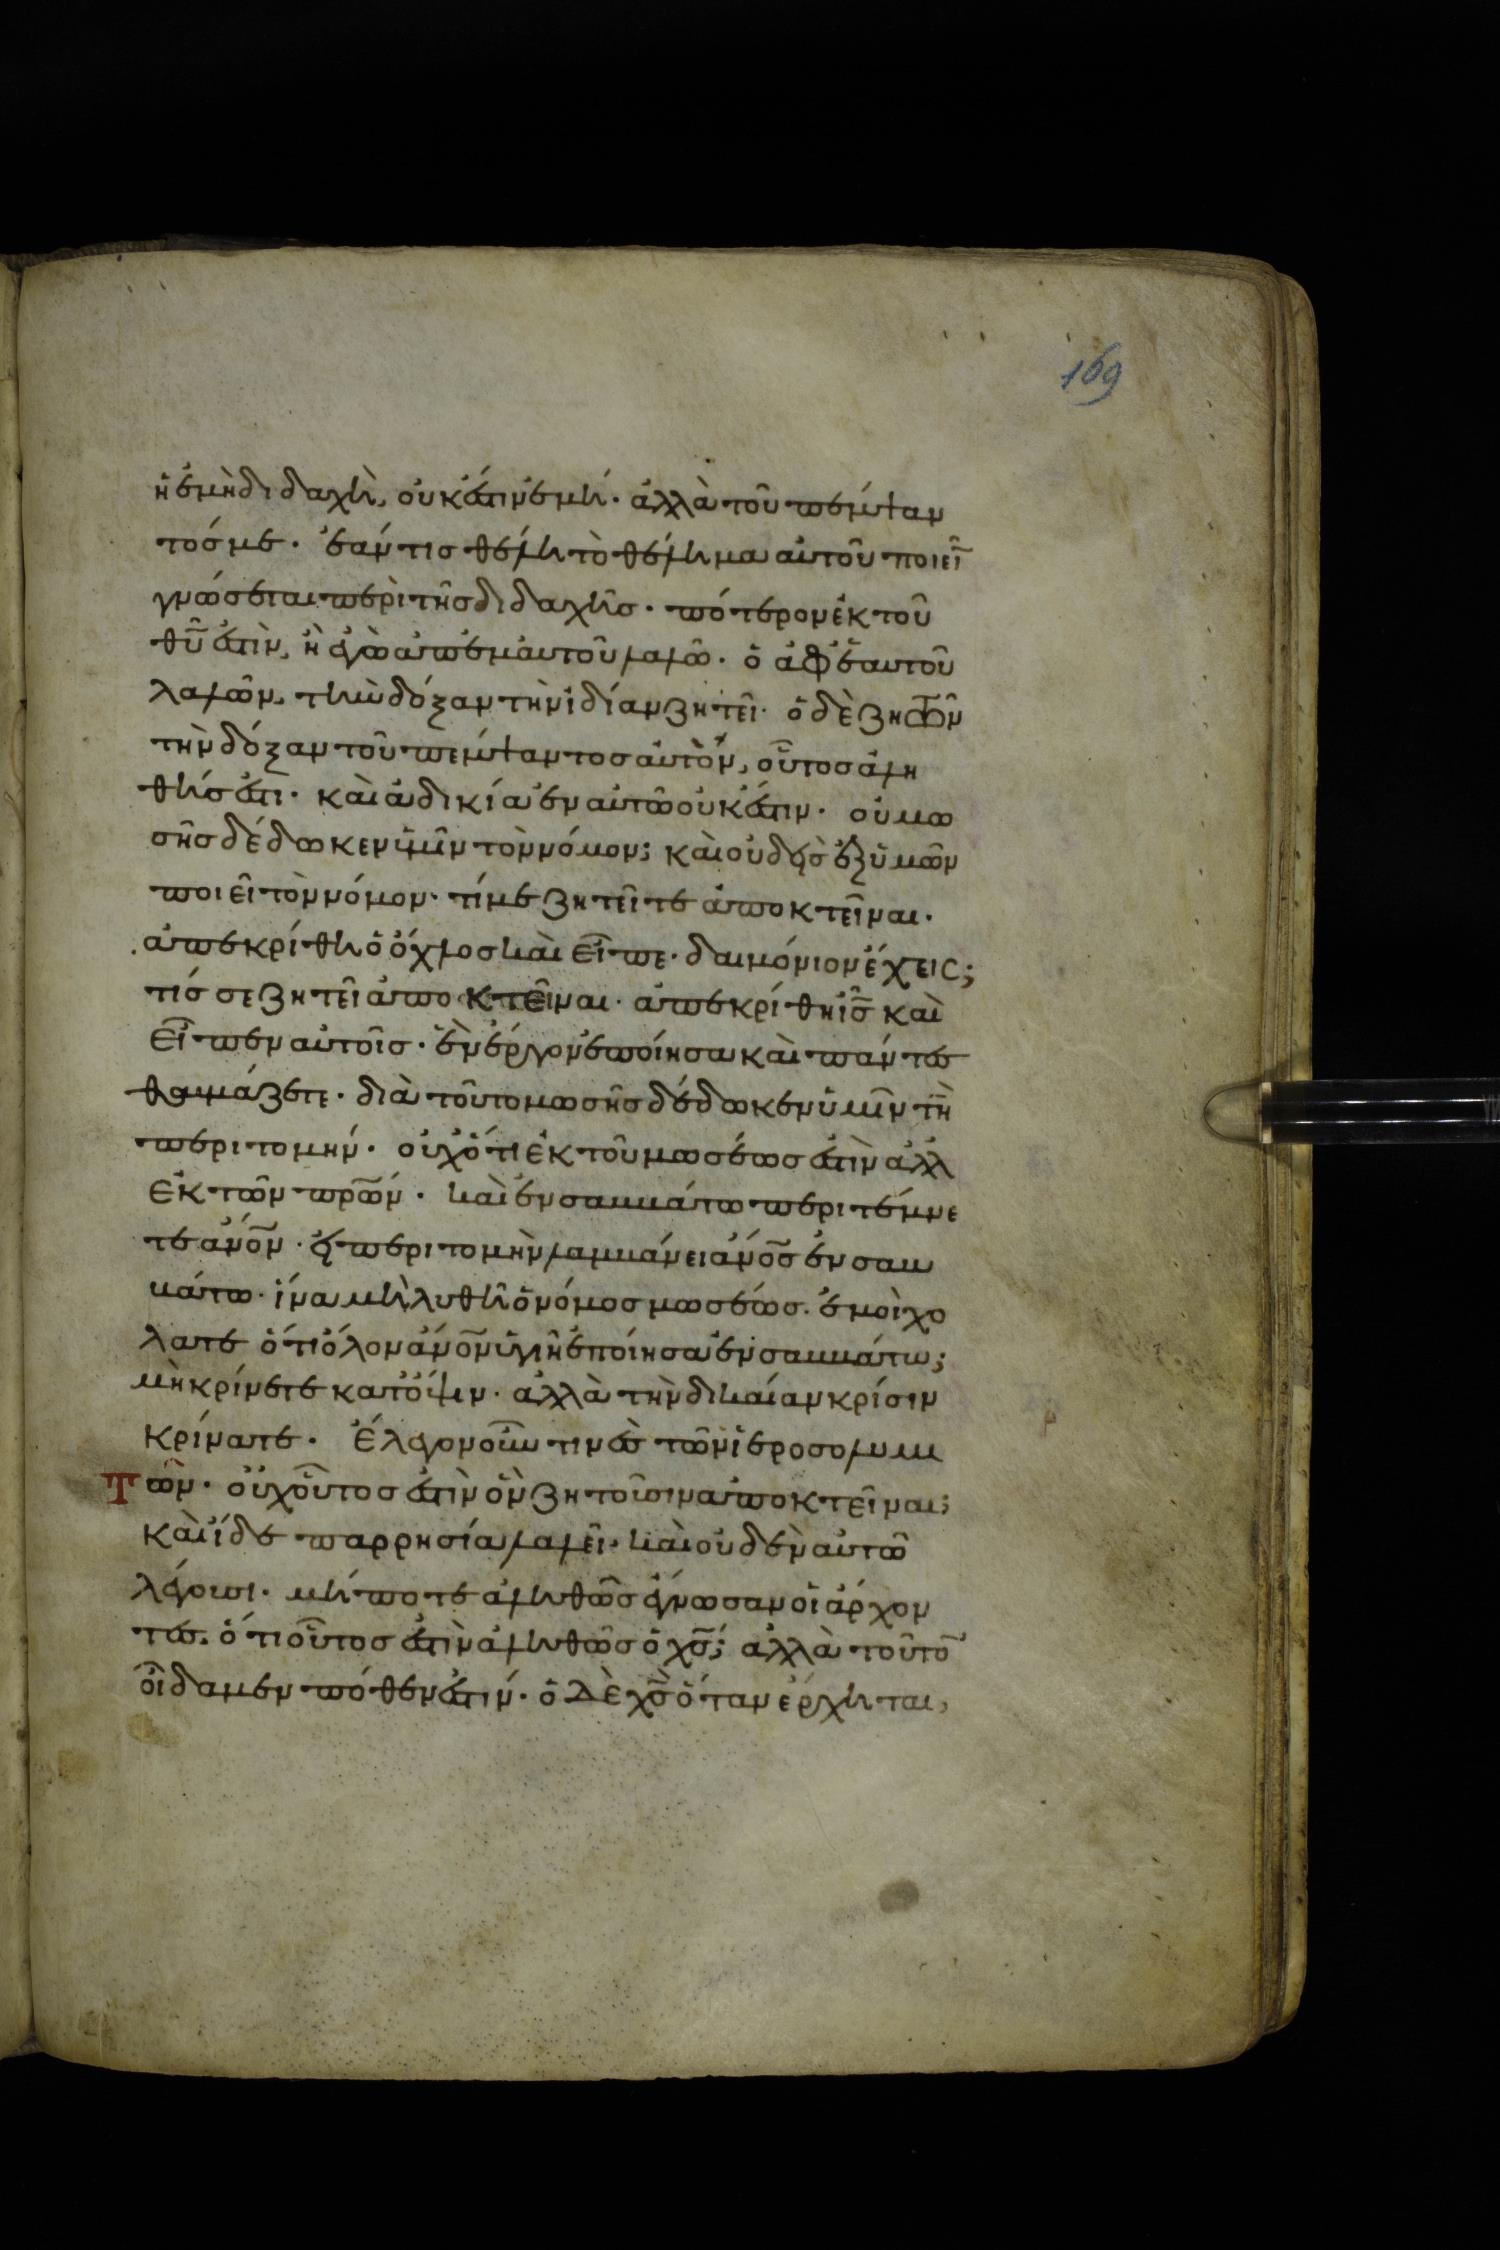 169
ἡ ἐμὴ διδαχὴ, οὐκ ἔστιν ἐμή· ἀλλὰ τοῦ πέμψαν
τός με· ἐάν τις θέλη τὸ θέλημα αὐτοῦ ποιεῖ̅
γνώσεται περὶ τῆς διδαχῆς· πότερον ἐκ τοῦ
θυ̅ ἐστὶν, ἢ ἐγὼ ἀπ' ἐμαυτοῦ λαλῶ· ὁ ἀφ' ἑαυτοῦ
λαλῶν, τὴν δόξαν τὴν ἰδίαν ζητεῖ· ὁ δὲ ζητῶν
τὴν δόξαν τοῦ πέμψαντος αὐτὸν, οὗτος ἀλη
θής ἐστι· καὶ ἀδικία ἐν αὐτῶ οὐκ ἔστιν· οὐ μω
σῆς δέδωκεν ὑμῖν τὸν νόμον; καὶ οὐδεὶς ἐξ ὑμῶν
ποιεῖ τὸν νόμον· τί με ζητεῖτε ἀποκτεῖναι·
ἀπεκρίθη ὁ ὄχλος καὶ εἶπε· δαιμόνιον ἔχεις;
τίς σε ζητεῖ ἀποκτεῖναι· ἀπεκρίθη ὁ ις̅ καὶ
εἶπεν αὐτοῖς· ἓν ἔργον ἐποίησα καὶ πάντες
θαυμάζετε· διὰ τοῦτο μωσῆς δέδωκεν ὑμῖν τὴ̅
περιτομήν· οὐχ ὅτι ἐκ τοῦ μωσέως ἐστὶν ἀλλ
ἐκ τῶν πρ̅ων· καὶ ἐν σαββάτω περιτέμνε
τε ἄν̅ον· εἰ περιτομὴν λαμβάνει ἄν̅ος ἐν σαβ
βάτω· ἵνα μὴ λυθῆ ὁ νόμος μωσέως· ἐμοὶ χο
λᾶτε ὅτι ὅλον ἄν̅ον ὑγιῆ ἐποίησα ἐν σαββάτω;
μὴ κρίνετε κατ' ὄψιν· ἀλλὰ τὴν δικαίαν κρίσιν
κρίνατε· Ἔλεγον οὖν τινὲς τῶν ἱεροσολυμι
τῶν· οὐχ οὗτος ἐστὶν ὃν ζητοῦσιν ἀποκτεῖναι;
καὶ ἴδε παρρησία λαλεῖ· καὶ οὐδὲν αὐτῶ
λέγουσι· μήποτε ἀληθῶς ἔγνωσαν οἱ ἄρχον
τες· ὅτι οὗτος ἐστὶν ἀληθῶς ὁ χς̅; ἀλλὰ τοῦτο̅
οἴδαμεν πόθεν ἐστίν· ὁ δὲ χς̅ ὅταν ἔρχηται,